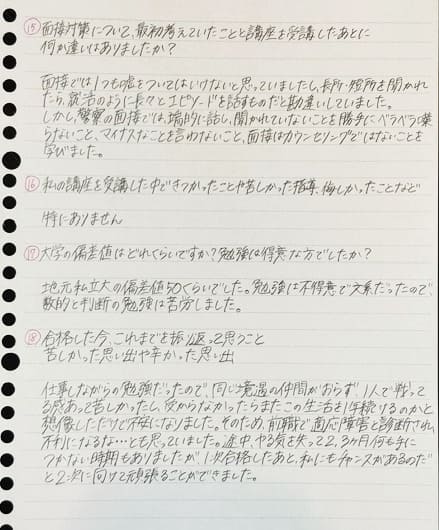 ⑮面接対策について、最初考えていたことと講座を受講したあとに
何か違いはありましたか？
面接では1つも嘘をついてはいけないと思っていましたし、長所・短所を聞かれ
たら、就活のように長々とエピソードを話すものだと勘違いしていました。
しかし、警察の面接では、端的に話し、聞かれていないことを勝手にベラベラ喋
らないこと、マイナスなことを言わないこと、面接はカウンセリングではないことを
学びました。
⑯私の講座を受講した中できつかったことや苦しかった指導、悔しかったことなど
特にありません
⑰大学の偏差値はどれくらいですか？勉強は得意な方でしたか？
地元私立大の偏差値50くらいでした。勉強は不得意で文系だったので、
数的と判断の勉強は苦労しました。
⑱合格した今、これまでを振り返って思うこと
苦しかった思い出や辛かった思い出
仕事しながらの勉強だったので、同じ境遇の仲間がおらず、1人で戦って
る感あって苦しかったし、受からなかったらまたこの生活を1年続けるのかと
想像しただけで不安になりました。そのため、前職で適応障害と診断され
不利になるな…とも思っていました。途中、やる気を失って2、3ヶ月何も手に
つかない時期もありましたが、1次合格したあと、私にもチャンスがあるのだ
と2次に向けて頑張ることができました。